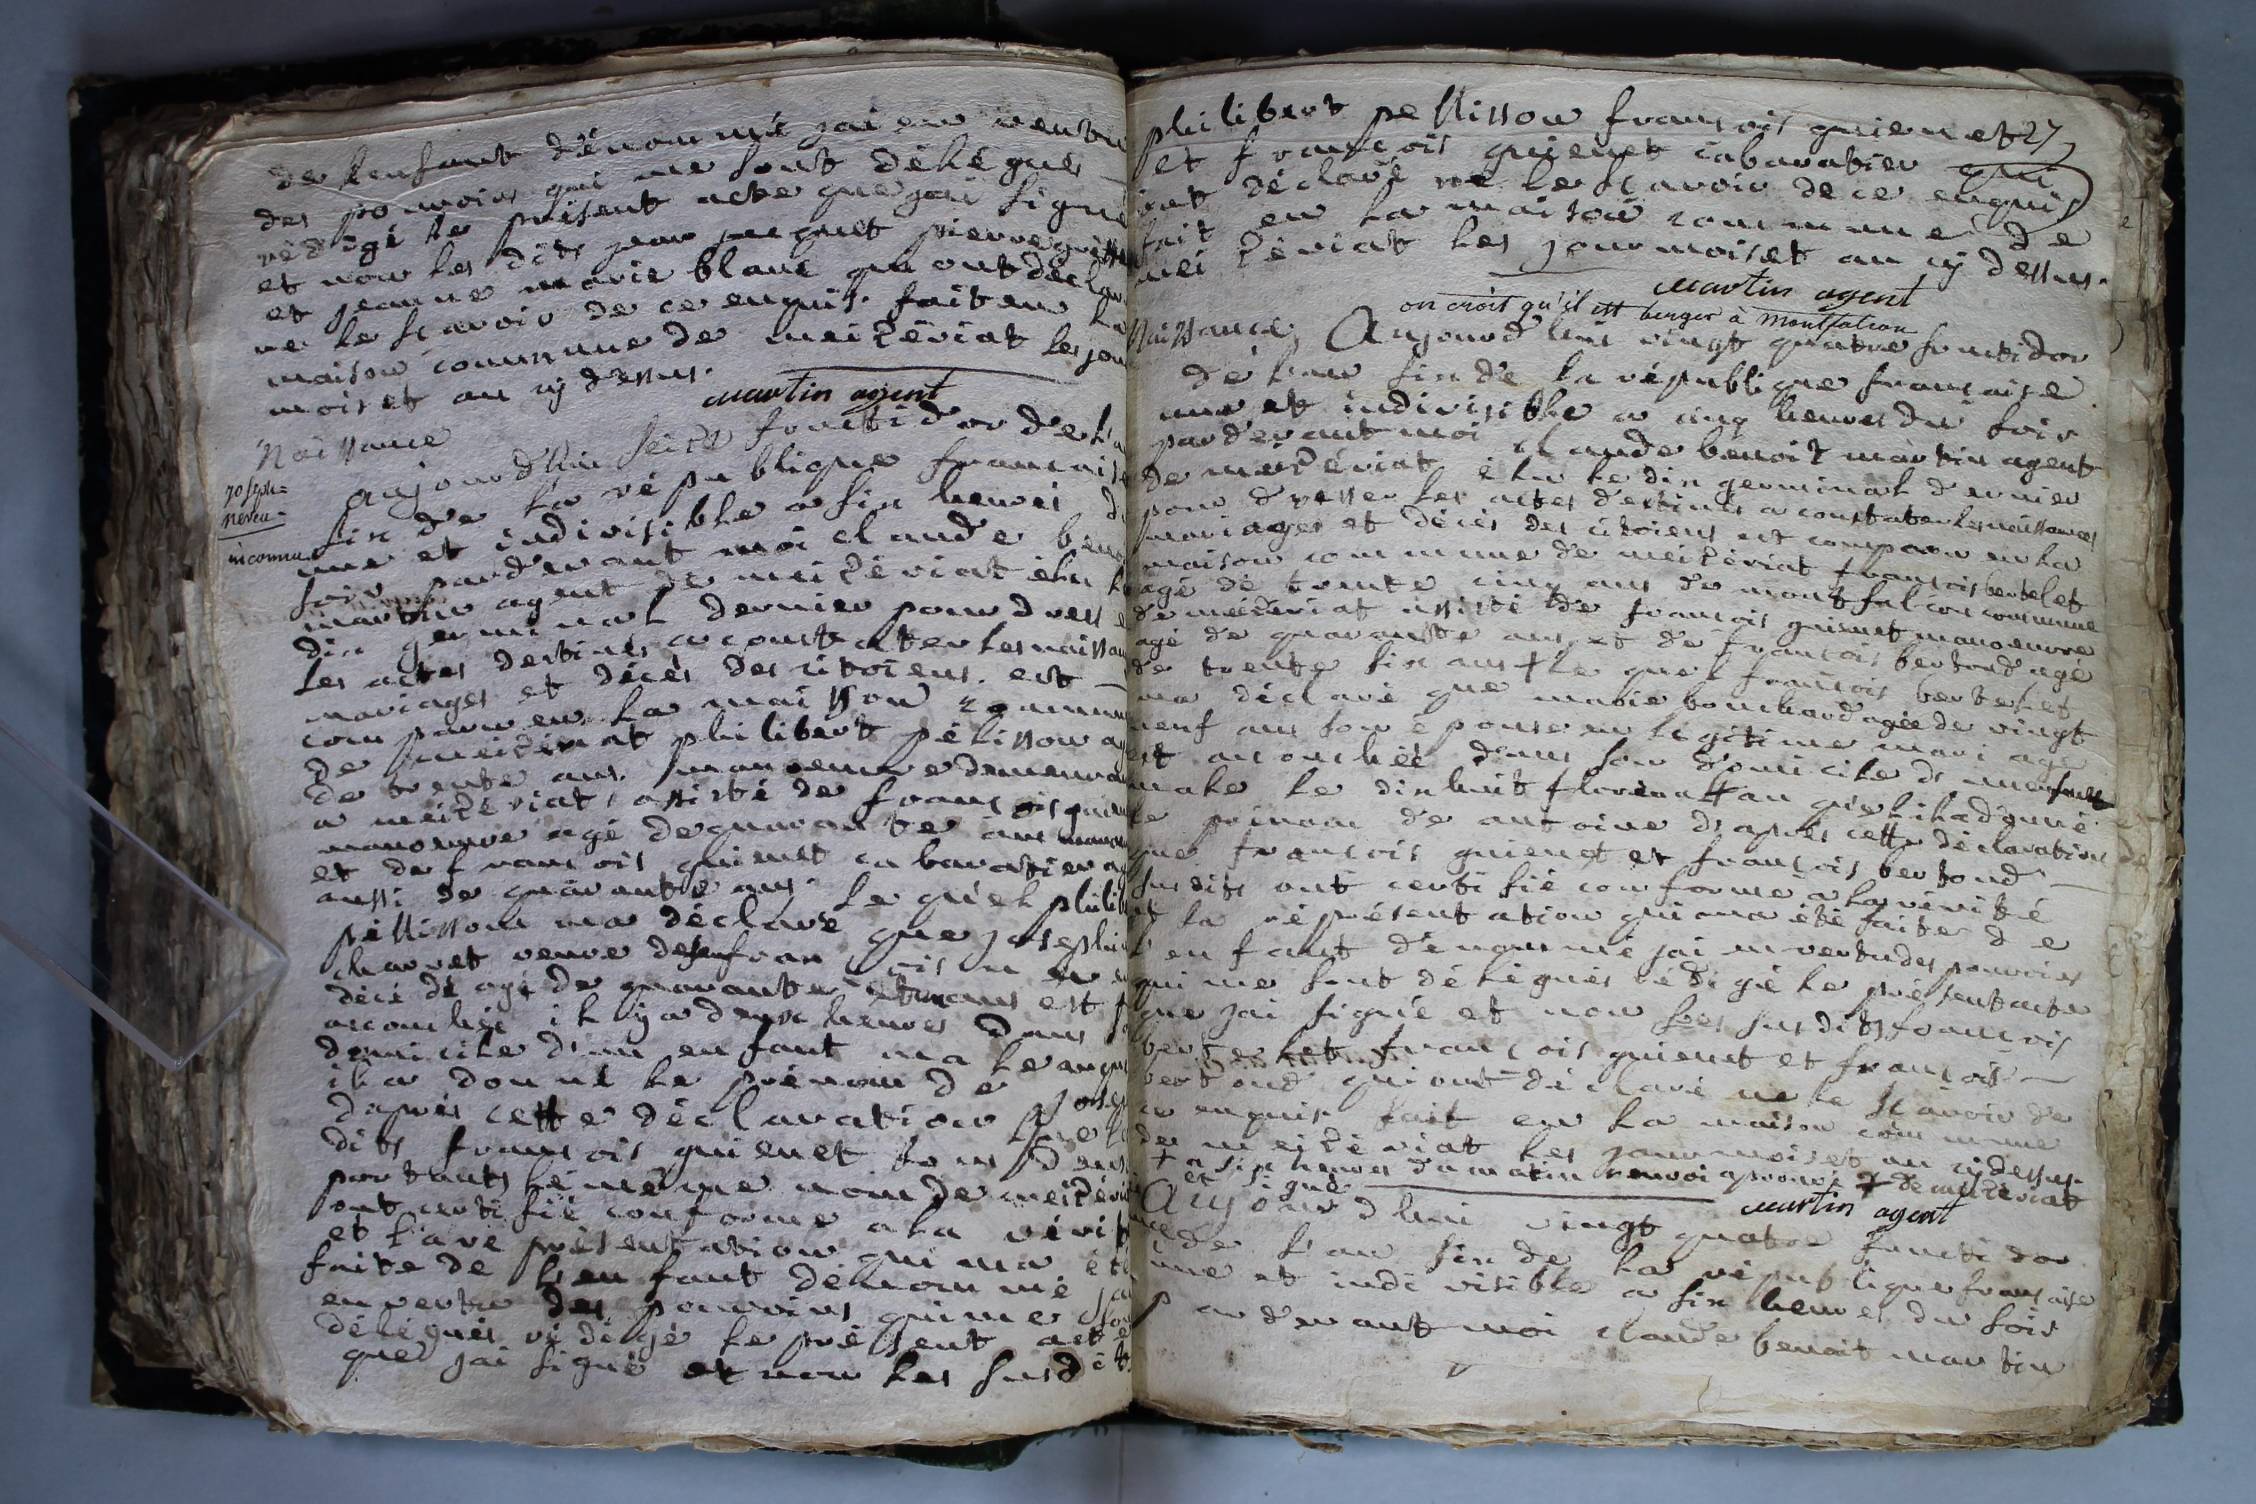 de lenfant dénommé jai en vertu
des pouvoirs qui me sont délégués
rédigé le présent acte que jai signé
et non les dits jean
et jeanne marie blanc qui ont déclar
ne le scavoir de ce enquis. fait en la
maison commune de meizériat les jou
mois et an cy dessus.
martin agent
Naissance
joseph
neveu
inconnu
aujourdhui seize fructidor de l'a
six de la république francaise
une et indivisible a six heures du
soir pardevant moi claude beno
martin agent de meizériat élu le
dix germinal dernier pour dresse
les actes destinés a constater les naissan
mariages et décès des citoiens. est
comparu en la maisson commun
de meizériat philibert pélisson agé
de trente ans. manoeuvre demeuran
a meizériat, assisté de francois guien
manoeuvre agé de quarante ans
et de francois guienet cabaratier a
aussi de quarante ans. le quel philib
pellisson ma déclaré que josephte
charvet veuve de francois
décédé agé de quarante ans est
accouchée il y a deux heures dans so
domicile d'un enfant male auquel
il a donné le prénom de josep
daprès cette déclaration que le
dits francois guienet tous deux
portants le même nom de meizéri
ont certifié conforme a la vérité
et la représentation qui ma été
faite de l'enfant dénommé jai
en vertu des pouvoirs qui me son
délégués rédigé le présent acte
que jai signé et non les susdits
philibert pellisson francois guienet 27
et francois guienet cabaratier qui
ont déclaré ne le scavoir de ce enquis
fait en la maison commune de
meizériat les jour mois et an cy dessus.
martin agent
on croit qu'il est berger à Montfalcon
Naissance, Aujourd'hui vingt quatre fructidor
de l'an six de la république francaise
une et indivisible a cinq heures du soir
pardevant moi claude benoit martin agent
de meizériat élu le dix germinal dernier
pour dresser les actes destinés a constater les naissances
mariages et décès des citoiens est comparu en la
maison commune de meizériat francois bertelet
agé de trente cinq ans de montfalcon commune
de meizériat assisté de francois guienet manoeuvre
agé de quarante ans, et de francois bertoud agé
de trente six ans + le quel francois bertelet
ma déclaré que marie bouchard agée de vingt
neuf ans son épouse en légitime mariage
est accouchée dans son domicile d'un enfant
male le dixhuit floréal + au quel il a donné
le prénom de antoine d'après cette déclaration
que francois guienet et francois bertoud
susdits ont certifié conforme a la vérité
et la représentation qui ma été faite de
l'enfant dénommé jai en vertu des pouvoirs
qui me sont délégués rédigé le présent acte
que jai signé et non les susdits francois
bertelet francois guienet et francois
bertoud qui ont déclaré ne le scavoir de
ce enquis fait en la maison commune
de meizériat les jour mois et an cy dessus.
+ a six heures du matin renvoi aprouvé + de meizériat
et signé
martin agent
Aujourdhui vingt quatre fructidor
de l'an six de la république francaise
une et indivisible a six heures du soir
pardevant moi claude benoit martin